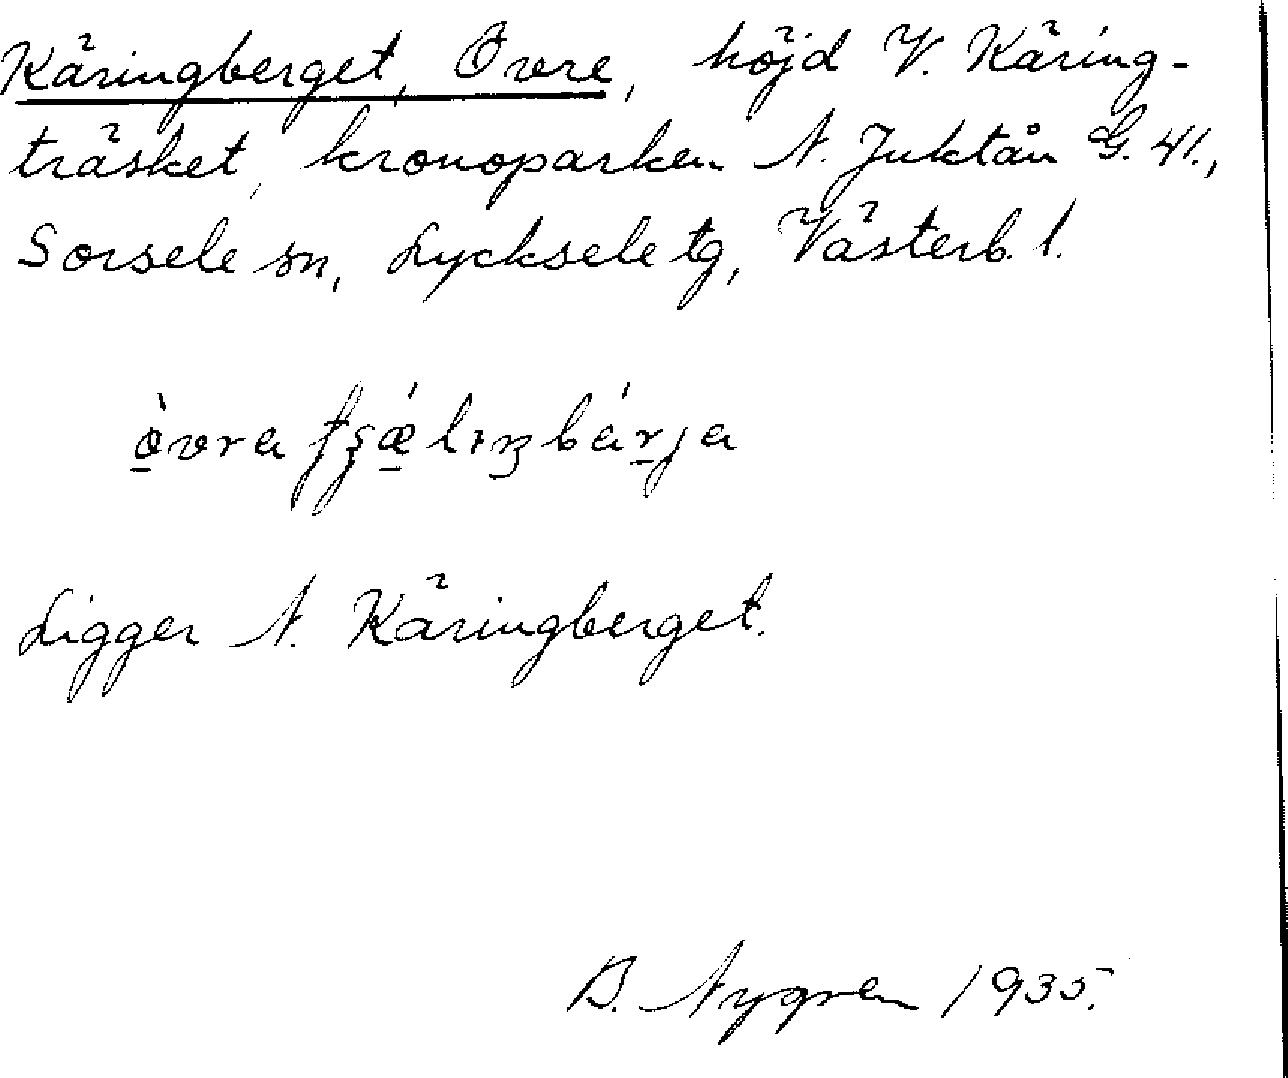 Käringberget, Övre, höjd V. Käring-
träsket, kronoparken N. Juktån G. 41.,
Sorsele sn, Lycksele tg, Västerb. l.
Ligger N. Käringberget.
B. Nygren 1935.